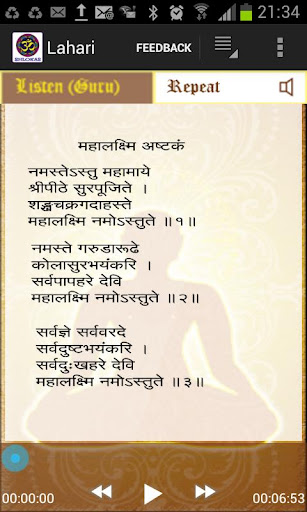 21:34
SHLOKAS
Lahari
FEEDBACK
Listen (Guru)
Repeat
महालक्ष्मि अष्टकं
नमस्तेऽस्तु महामाये
श्रीपीठे सुरपूजिते ।
शङ्खचक्रगदाहस्ते
महालक्ष्मि नमोऽस्तुते ॥१॥
नमस्ते गरुडारूढे
कोलासुरभयंकरि ।
सर्वपापहरे देवि
महालक्ष्मि नमोऽस्तुते ॥२॥
सर्वज्ञे सर्ववरदे
सर्वदुष्टभयंकरि ।
सर्वदुःखहरे देवि
महालक्ष्मि नमोऽस्तुते ॥३॥
00:00:00
00:06:53